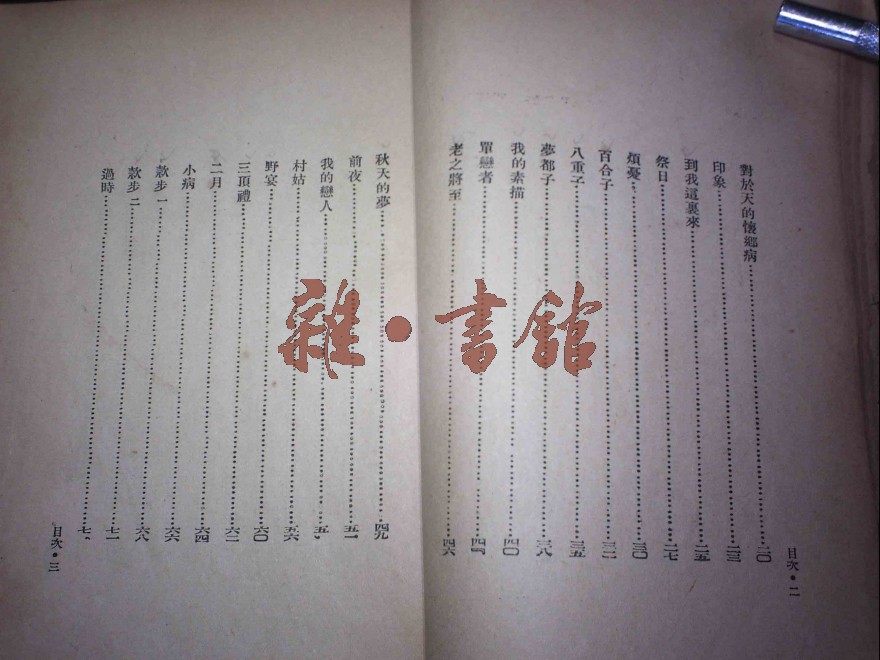 對於天的懷鄉病……二〇
印象……二三
到我這裏來……二五
祭日……二七
煩憂……三〇
百合子……三二
八重子……三五
夢都子……三八
我的素描……四〇
單戀者……四
老之將至……四六
目次・二
秋天的夢……四九
前夜……五一
我的戀人……五
村姑……五六
野宴……六〇
三頂禮……六二
二月……六四
小病……六六
款步一……六八
款步二……七一
過時……七
目次・三
雜・書館